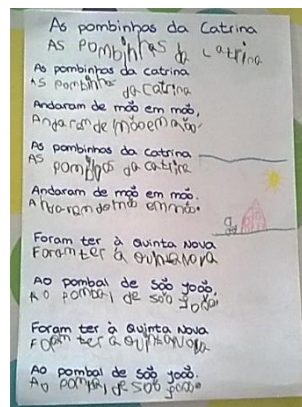 As pombinhas da Catrina
AS POMbinhas da Catrina
As pombinhas da catrina
AS pombinhas da Catrina
Andaram de mão em mão,
Andaram de mão em mão.
As pombinhas da Catrina
AS
Andaram de mão em mão.
em mão.
Foram ter à Quinta Nova
Foram ter à Quinta Nova
AO pombal de São João,
AO pombal de São João.
Foram ter à Quinta Nova
Foram ter à Quinta Nova
Ao pombal de São João.
AO pombal de São João